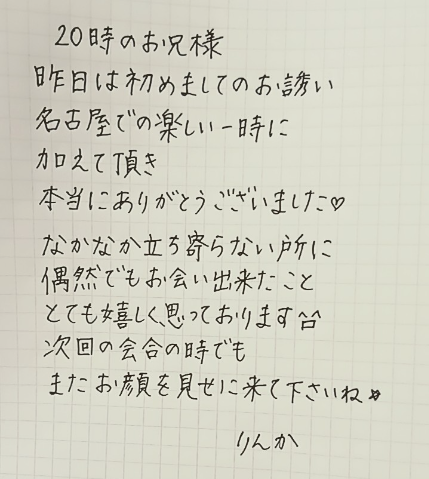 20時のお兄様
昨日は初めましてのお誘い
名古屋での楽しい一時に
加えて頂き
本当にありがとうございました♡
なかなか立ち寄らない所に
偶然でもお会い出来たこと
とても嬉しく思っております^^
次回の会合の時でも
またお顔を見せに来て下さいね
りんか